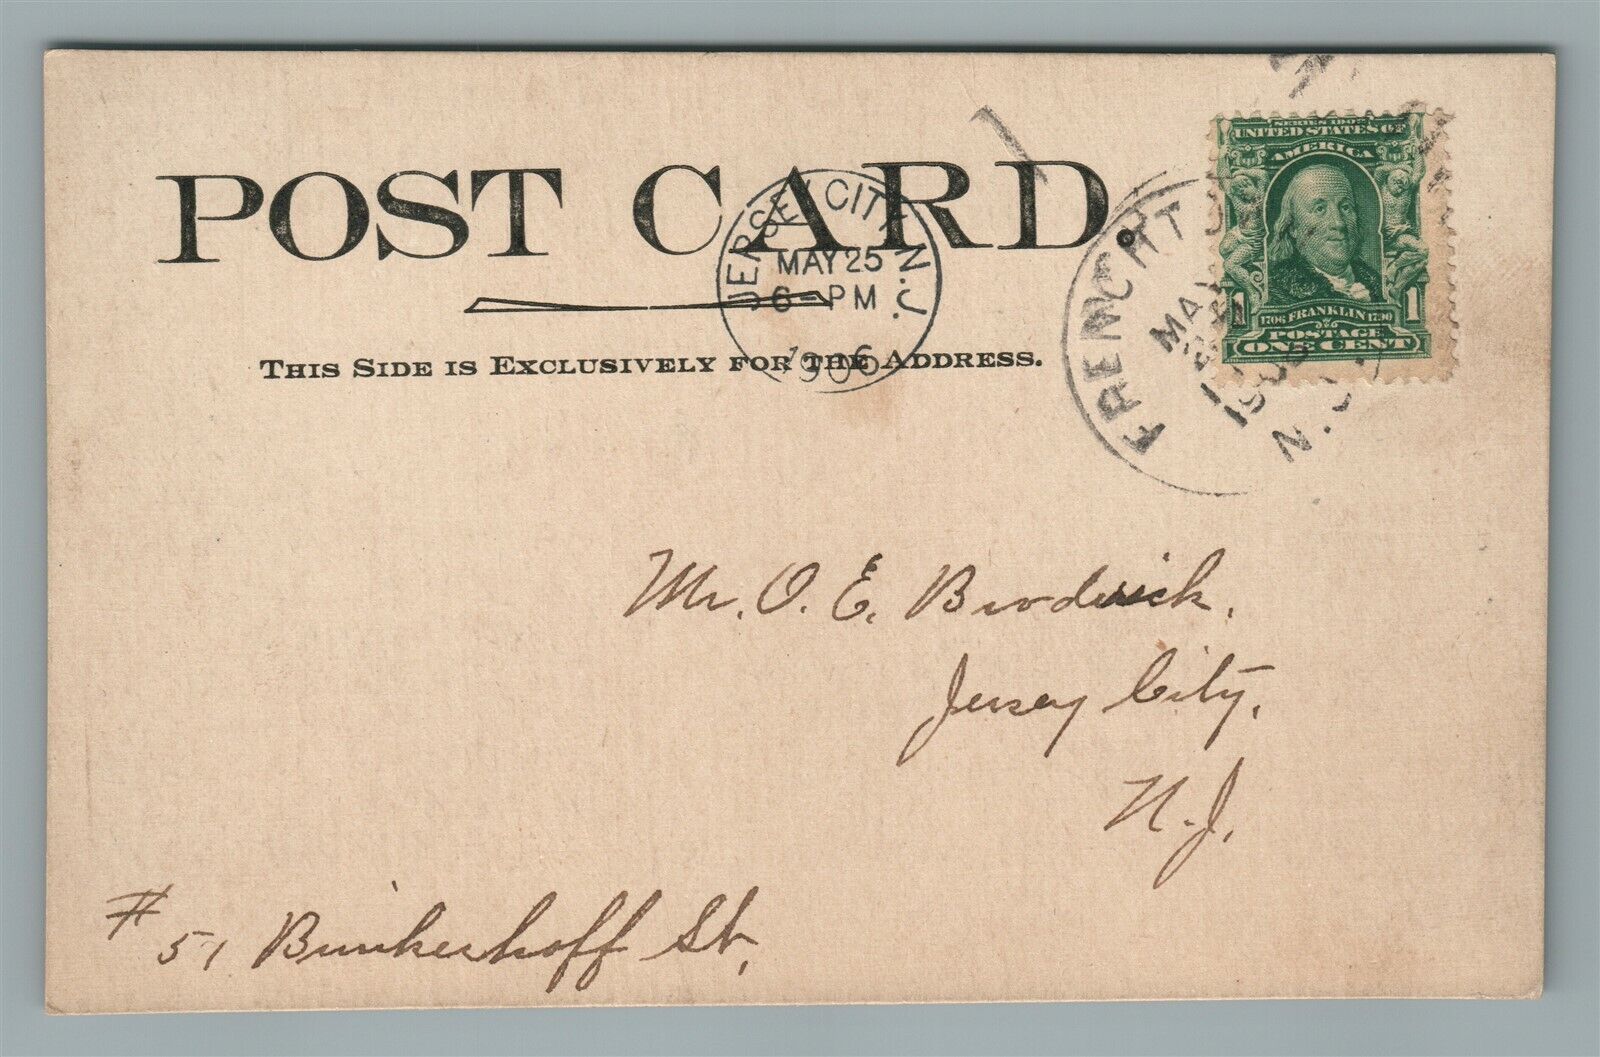 POST CARD.
JERSEY CITY, N.J.
MAY 25
6 - PM
1906
THIS SIDE IS EXCLUSIVELY FOR THE ADDRESS.
FRENCHT
MAY
N.J.
SERIES 1902
UNITED STATES OF
AMERICA
1706 FRANKLIN 1790
1 POSTAGE 1
ONE CENT
Mr. O. E. Brodrick,
Jersey City,
N. J.
# 51 Brinkerhoff St.